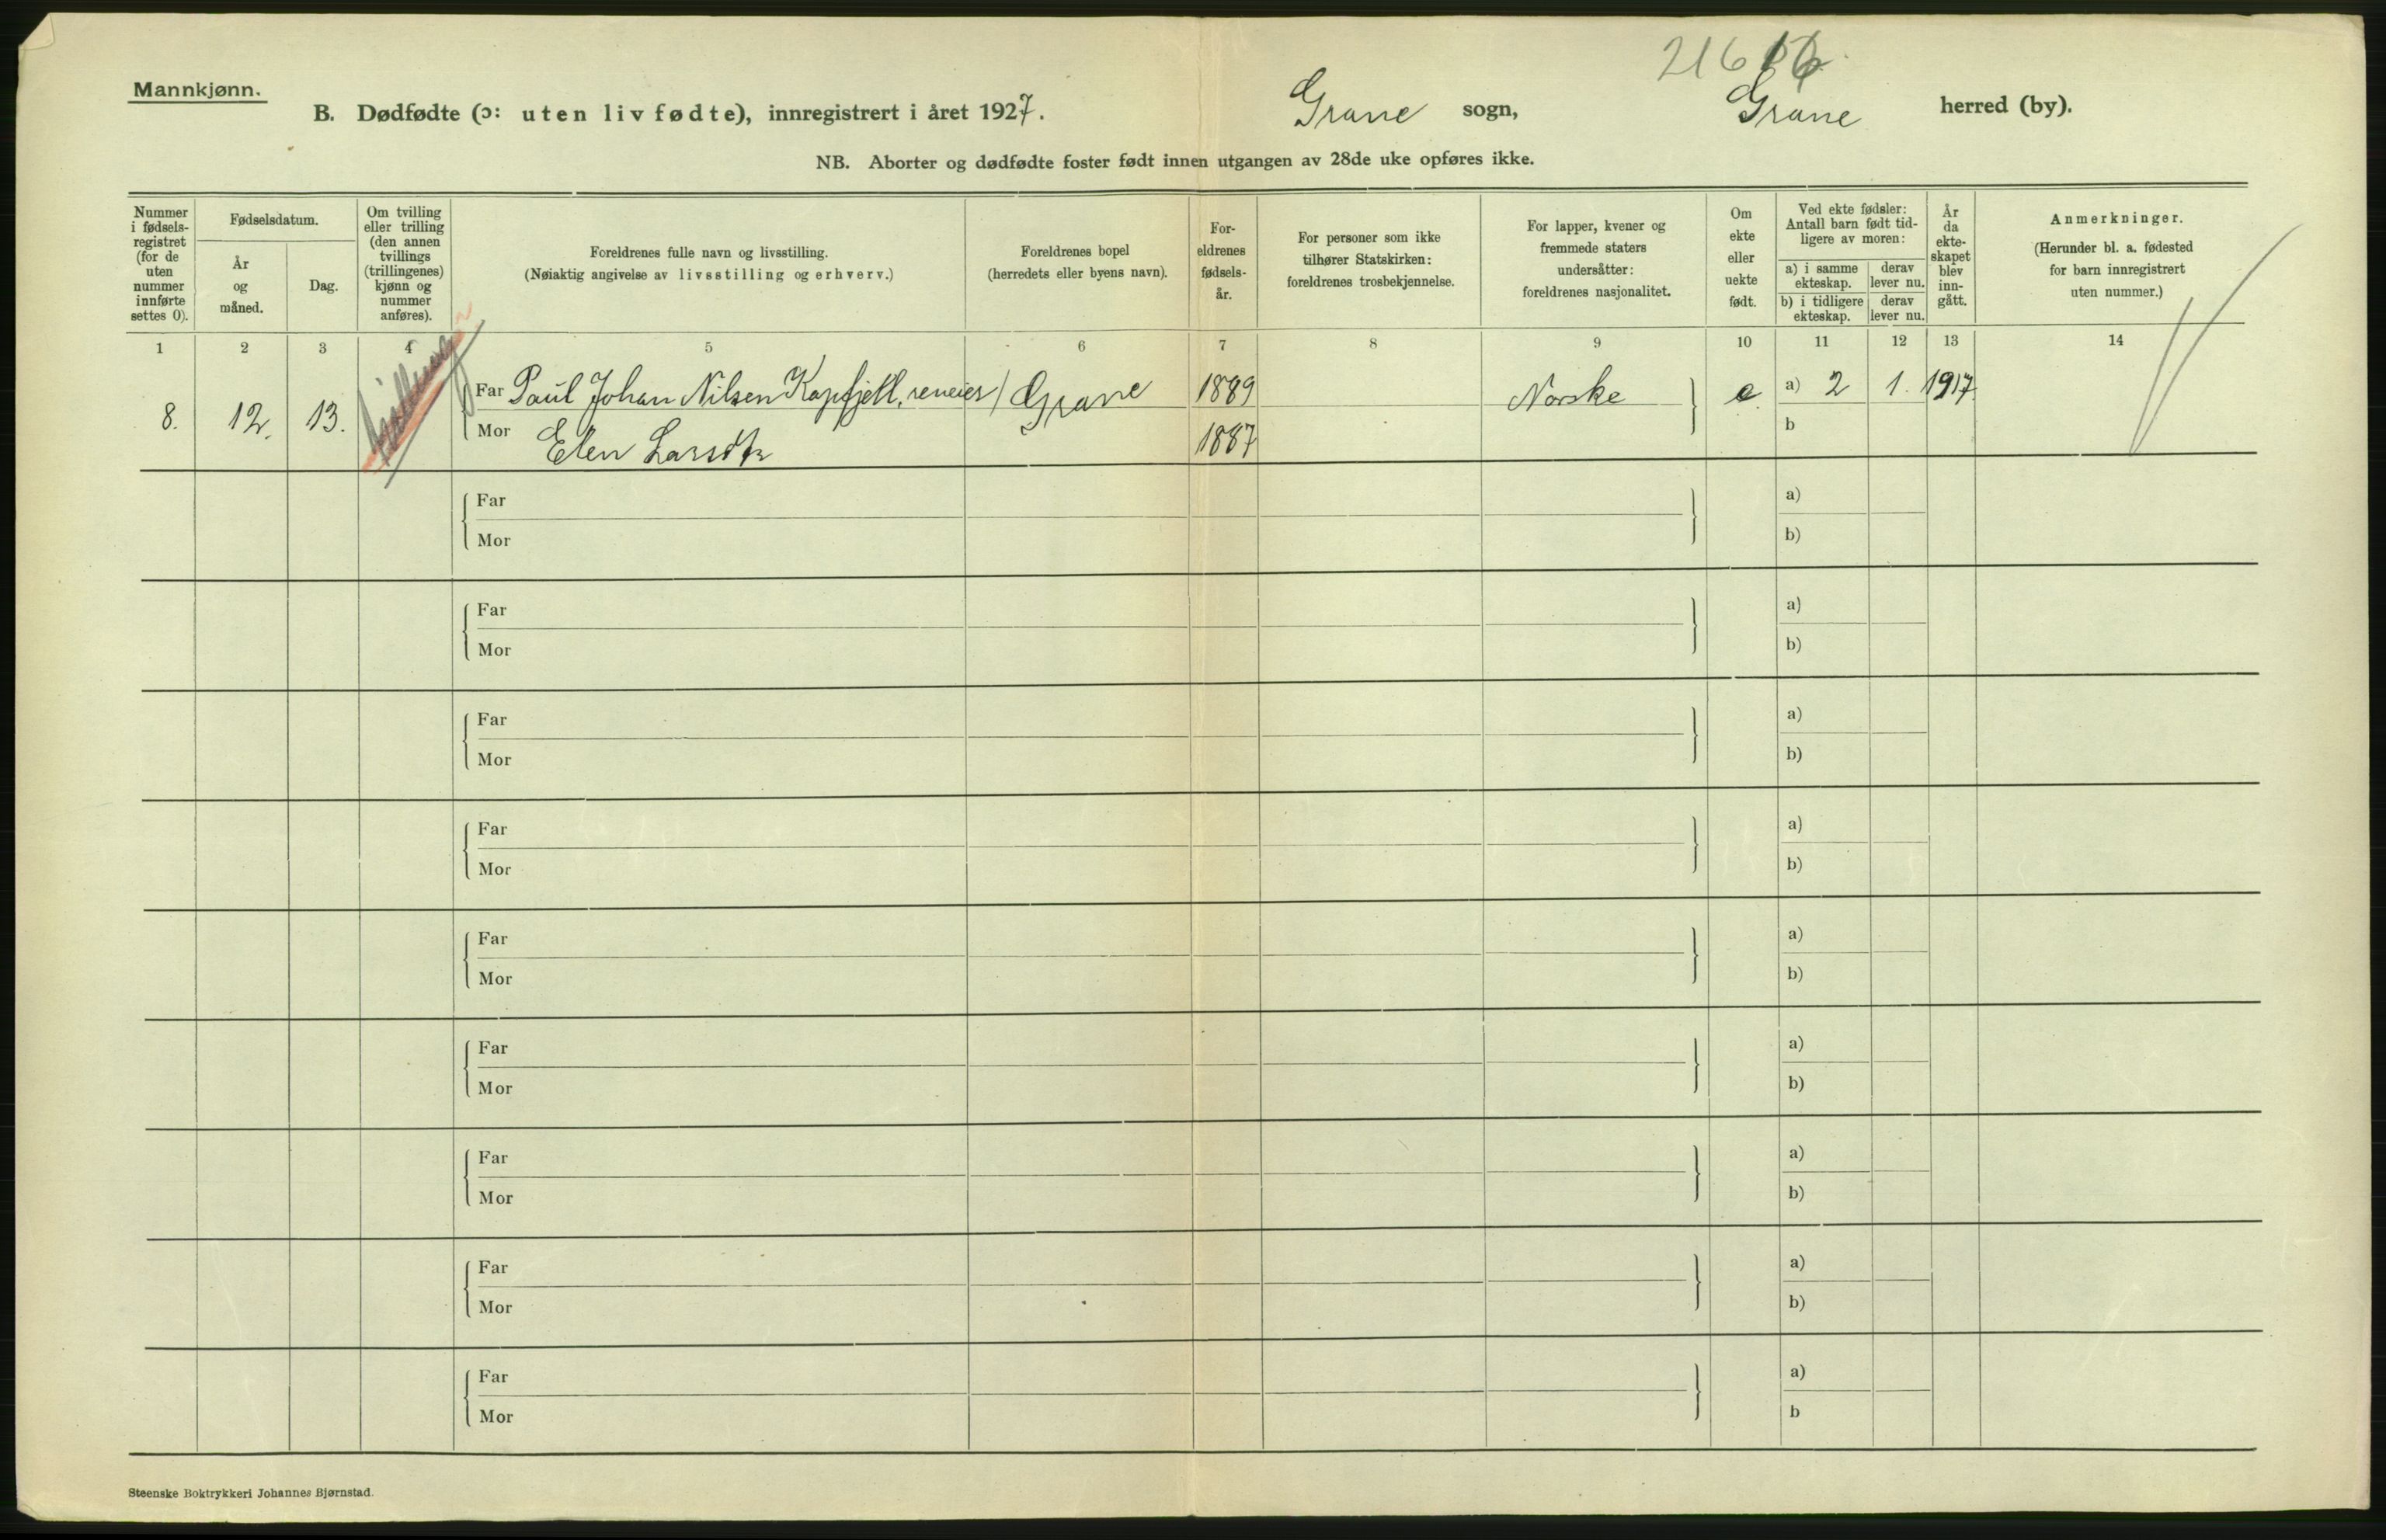 Mannkjønn.
B. Dødfødte (ɔ: uten liv fødte), innregistrert i året 1927. Grane sogn, Grane herred (by).
NB. Aborter og dødfødte foster født innen utgangen av 28de uke opføres ikke.
Nummer i fødselsregistret (for de uten nummer innførte settes 0).
Fødselsdatum.
År og måned.
Dag.
Om tvilling eller trilling (den annen tvillings (trillingenes) kjønn og nummer anføres).
Foreldrenes fulle navn og livsstilling.
(Nøiaktig angivelse av livsstilling og erhverv.)
Foreldrenes bopel
(herredets eller byens navn).
Foreldrenes fødselsår.
For personer som ikke tilhører Statskirken: foreldrenes trosbekjennelse.
For lapper, kvener og fremmede staters undersåtter: foreldrenes nasjonalitet.
Om ekte eller uekte født.
Ved ekte fødsler: Antall barn født tidligere av moren:
a) i samme ekteskap. derav lever nu.
b) i tidligere ekteskap. derav lever nu.
År da ekteskapet blev inngått.
Anmerkninger.
(Herunder bl. a. fødested for barn innregistrert uten nummer.)
1 2 3 4 5 6 7 8 9 10 11 12 13 14
8. 12. 13. Far Paul Johan Nilsen Kapfjell, reneier Grane 1889 Norske e a) 2 1. 1917
Mor Elen Larsdtr 1887 b
Far a)
Mor b)
Far a)
Mor b)
Far a)
Mor b)
Far a)
Mor b)
Far a)
Mor b)
Far a)
Mor b)
Far a)
Mor b)
Far a)
Mor b)
Far a)
Mor b
Steenske Boktrykkeri Johannes Bjørnstad.